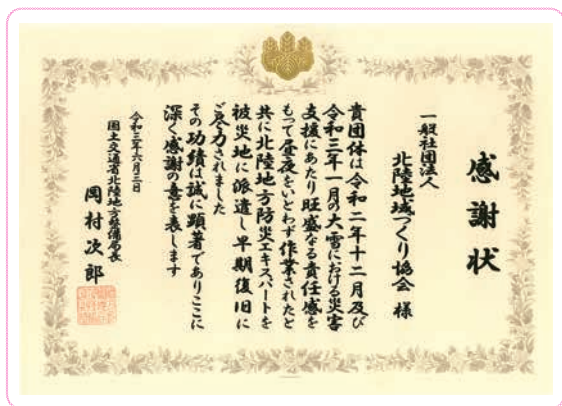 感謝状
一般社団法人
北陸地域づくり協会 様
貴団体は令和二年十二月及び
令和三年一月の大雪における災害
支援にあたり旺盛なる責任感を
もって昼夜をいとわず作業されたと
共に北陸地方防災エキスパートを
被災地に派遣し早期復旧に
ご尽力されました
その功績は誠に顕著でありここに
深く感謝の意を表します
令和三年六月三日
国土交通省北陸地方整備局長
岡村次郎